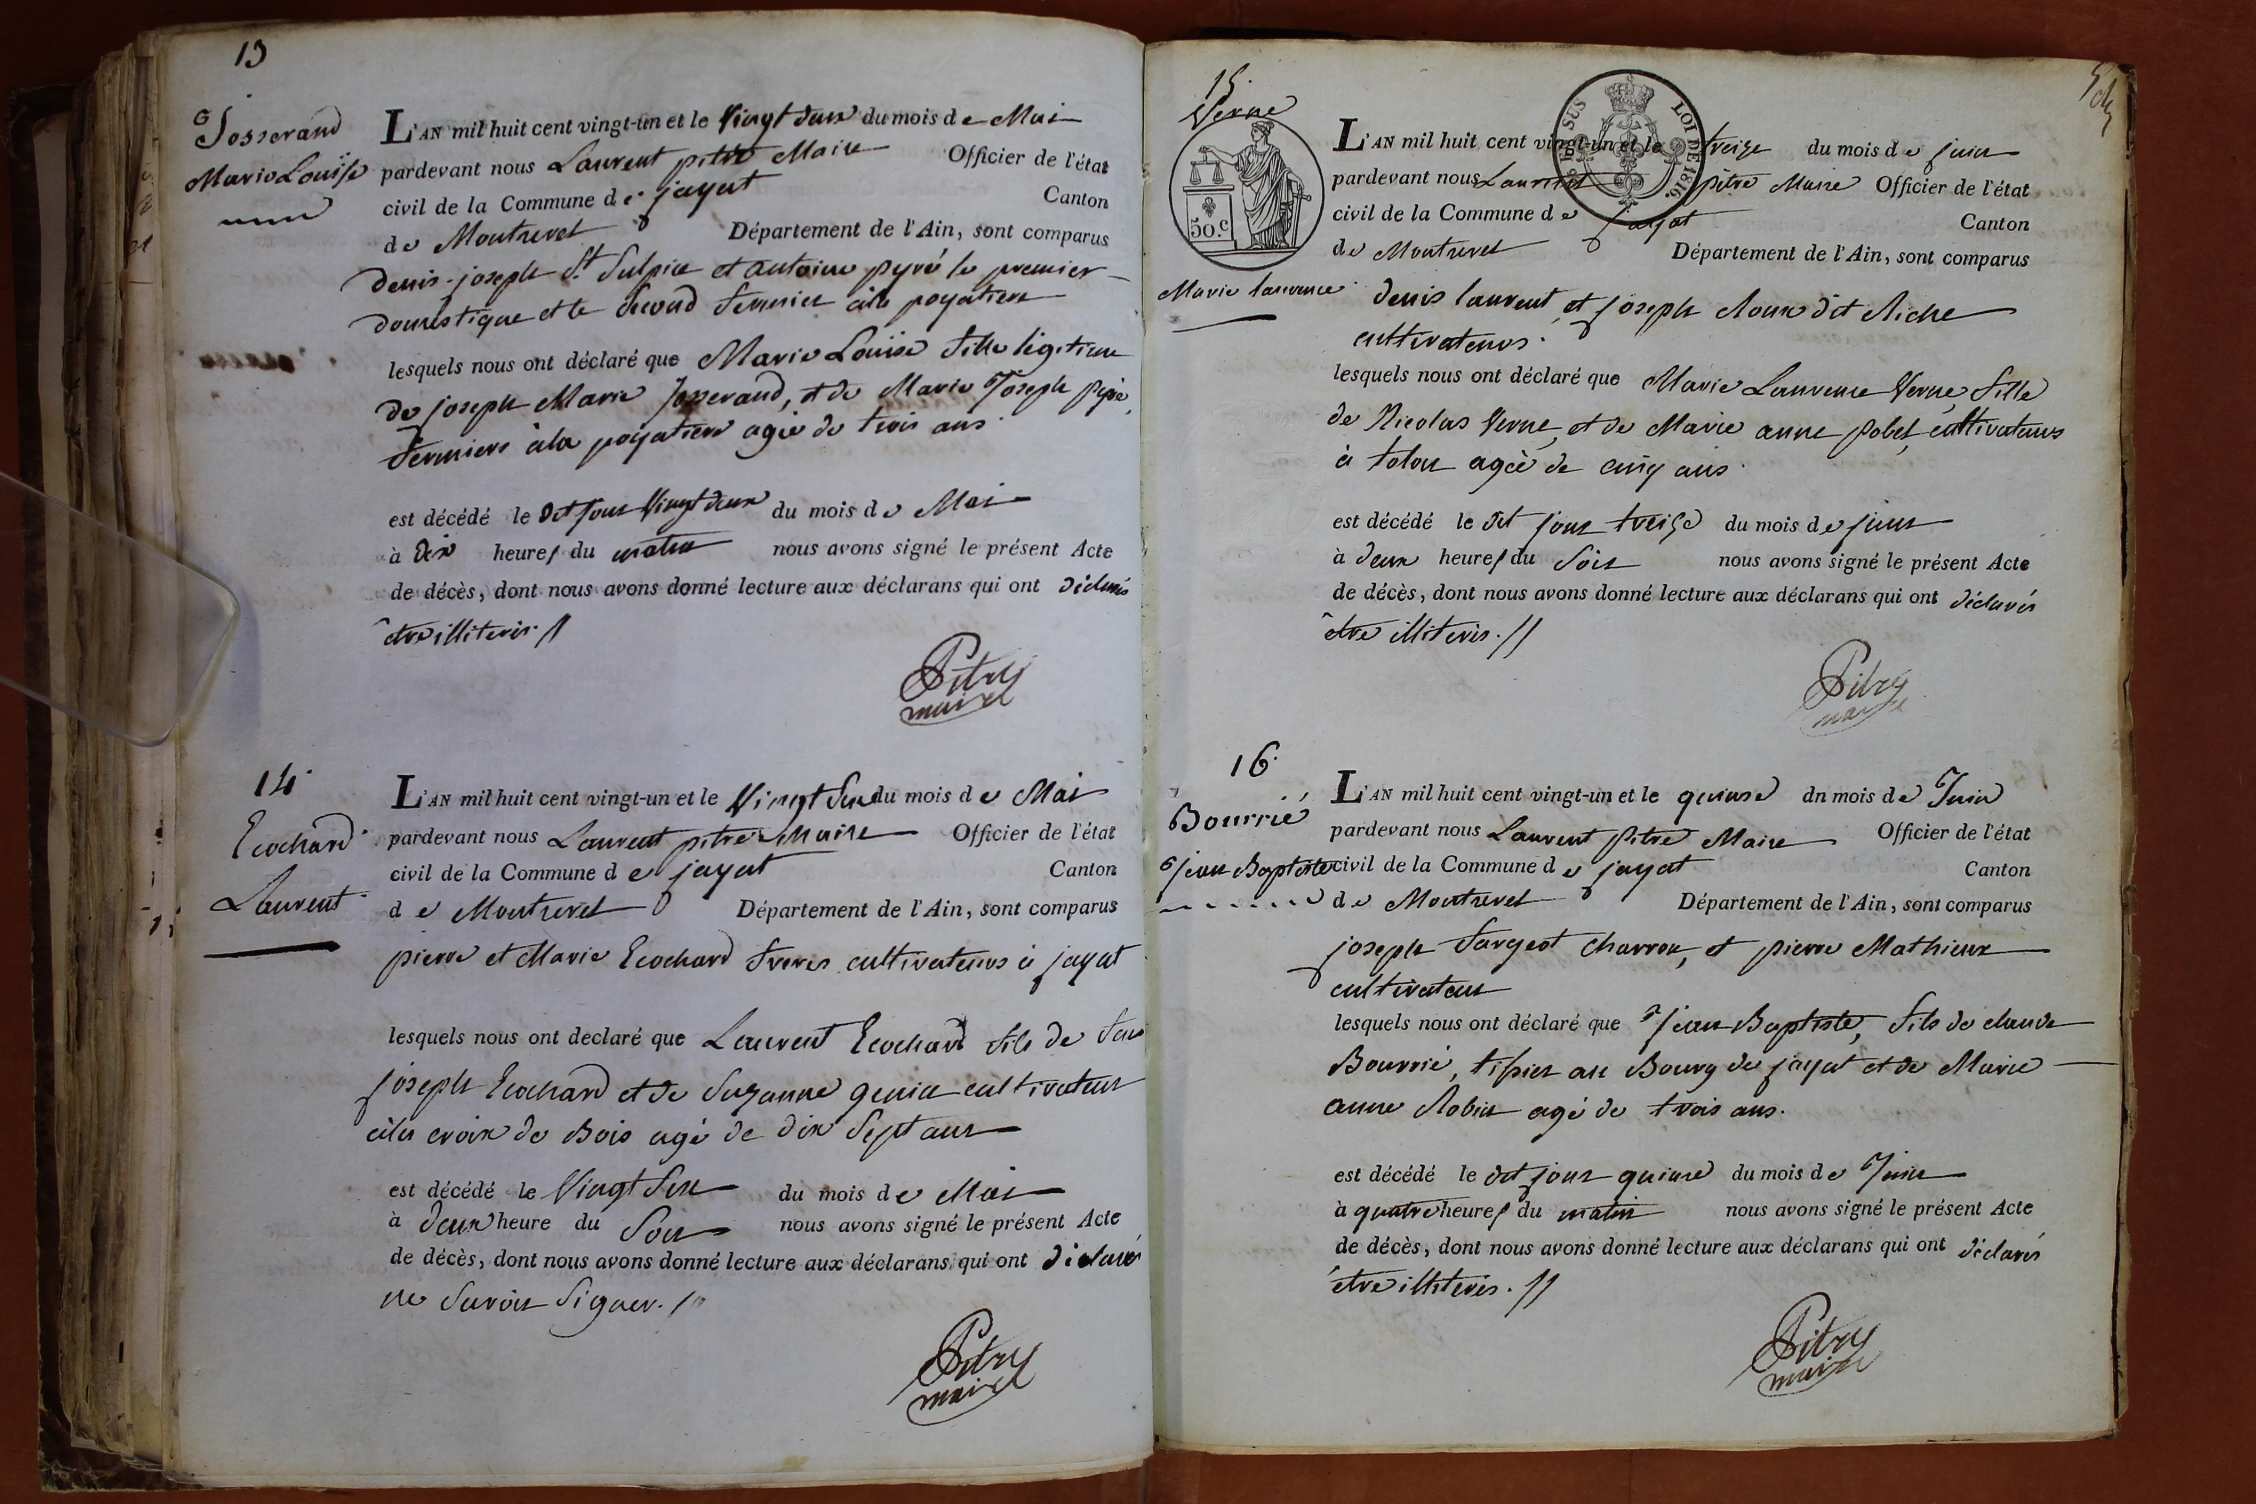 13
Josserand
Marie Louise
L'AN mil huit cent vingt-un et le Vingt deux du mois de Mai
pardevant nous Laurent pitre Maire Officier de l'état
civil de la Commune de jayat Canton
de Montrevel Département de l'Ain, sont comparus
denis joseph St Sulpice et antoine pyré le premier
domestique et le Second fermier à la poyatiere
lesquels nous ont déclaré que Marie Louise fille légitime
de joseph Marie Josserand, et de Marie Joseph
fermiers à la poyatiere agée de trois ans
est décédé le dit jour Vingt deux du mois de Mai
à dix heures du matin nous avons signé le présent Acte
de décès, dont nous avons donné lecture aux déclarans qui ont déclarés
être illiterés.
Pitre
maire
14
Ecochard
Laurent
L'AN mil huit cent vingt-un et le Vingt Six du mois de Mai
pardevant nous Laurent pitre Maire Officier de l'état
civil de la Commune de jayat Canton
de Montrevel Département de l'Ain, sont comparus
pierre et Marie Ecochard freres cultivateurs à jayat
lesquels nous ont declaré que Laurent Ecochard fils de feu
joseph Ecochard et de Suzanne cultivateur
à la croix de Bois agé de dix Sept ans
est décédé le Vingt Six du mois de Mai
à deux heure du Soir nous avons signé le présent Acte
de décès, dont nous avons donné lecture aux déclarans qui ont déclarés
ne Savoir Signer.
Pitre
maire
15
Verne
50.c
SUS
LOI DE 1816.
Marie laurence
L'AN mil huit cent vingt-un et le treize du mois de juin
pardevant nous Laurent pitre Maire Officier de l'état
civil de la Commune de jayat Canton
de Montrevel Département de l'Ain, sont comparus
denis laurent et joseph Roux dit Riche
cultivateurs.
lesquels nous ont déclaré que Marie Laurence Verne, fille
de Nicolas Verne, et de Marie anne pobel, cultivateurs
à tolon agée de cinq ans.
est décédé le dit jour treize du mois de juin
à deux heures du Soir nous avons signé le présent Acte
de décès, dont nous avons donné lecture aux déclarans qui ont déclarés
être illiterés.
Pitre
maire
16
Bourrié
jean Baptiste
L'AN mil huit cent vingt-un et le quinse dn mois de Juin
pardevant nous Laurent Pitre Maire Officier de l'état
civil de la Commune de jayat Canton
de Montrevel Département de l'Ain, sont comparus
joseph fargeot charron, et pierre Mathieux
cultivateur
lesquels nous ont déclaré que jean Baptiste, fils de claude
Bourrié, tissier au Bourg de jayat et de Marie
anne Robin agé de trois ans.
est décédé le dit jour quinse du mois de Juin
à quatre heures du matin nous avons signé le présent Acte
de décès, dont nous avons donné lecture aux déclarans qui ont déclarés
être illiterés.
Pitre
maire